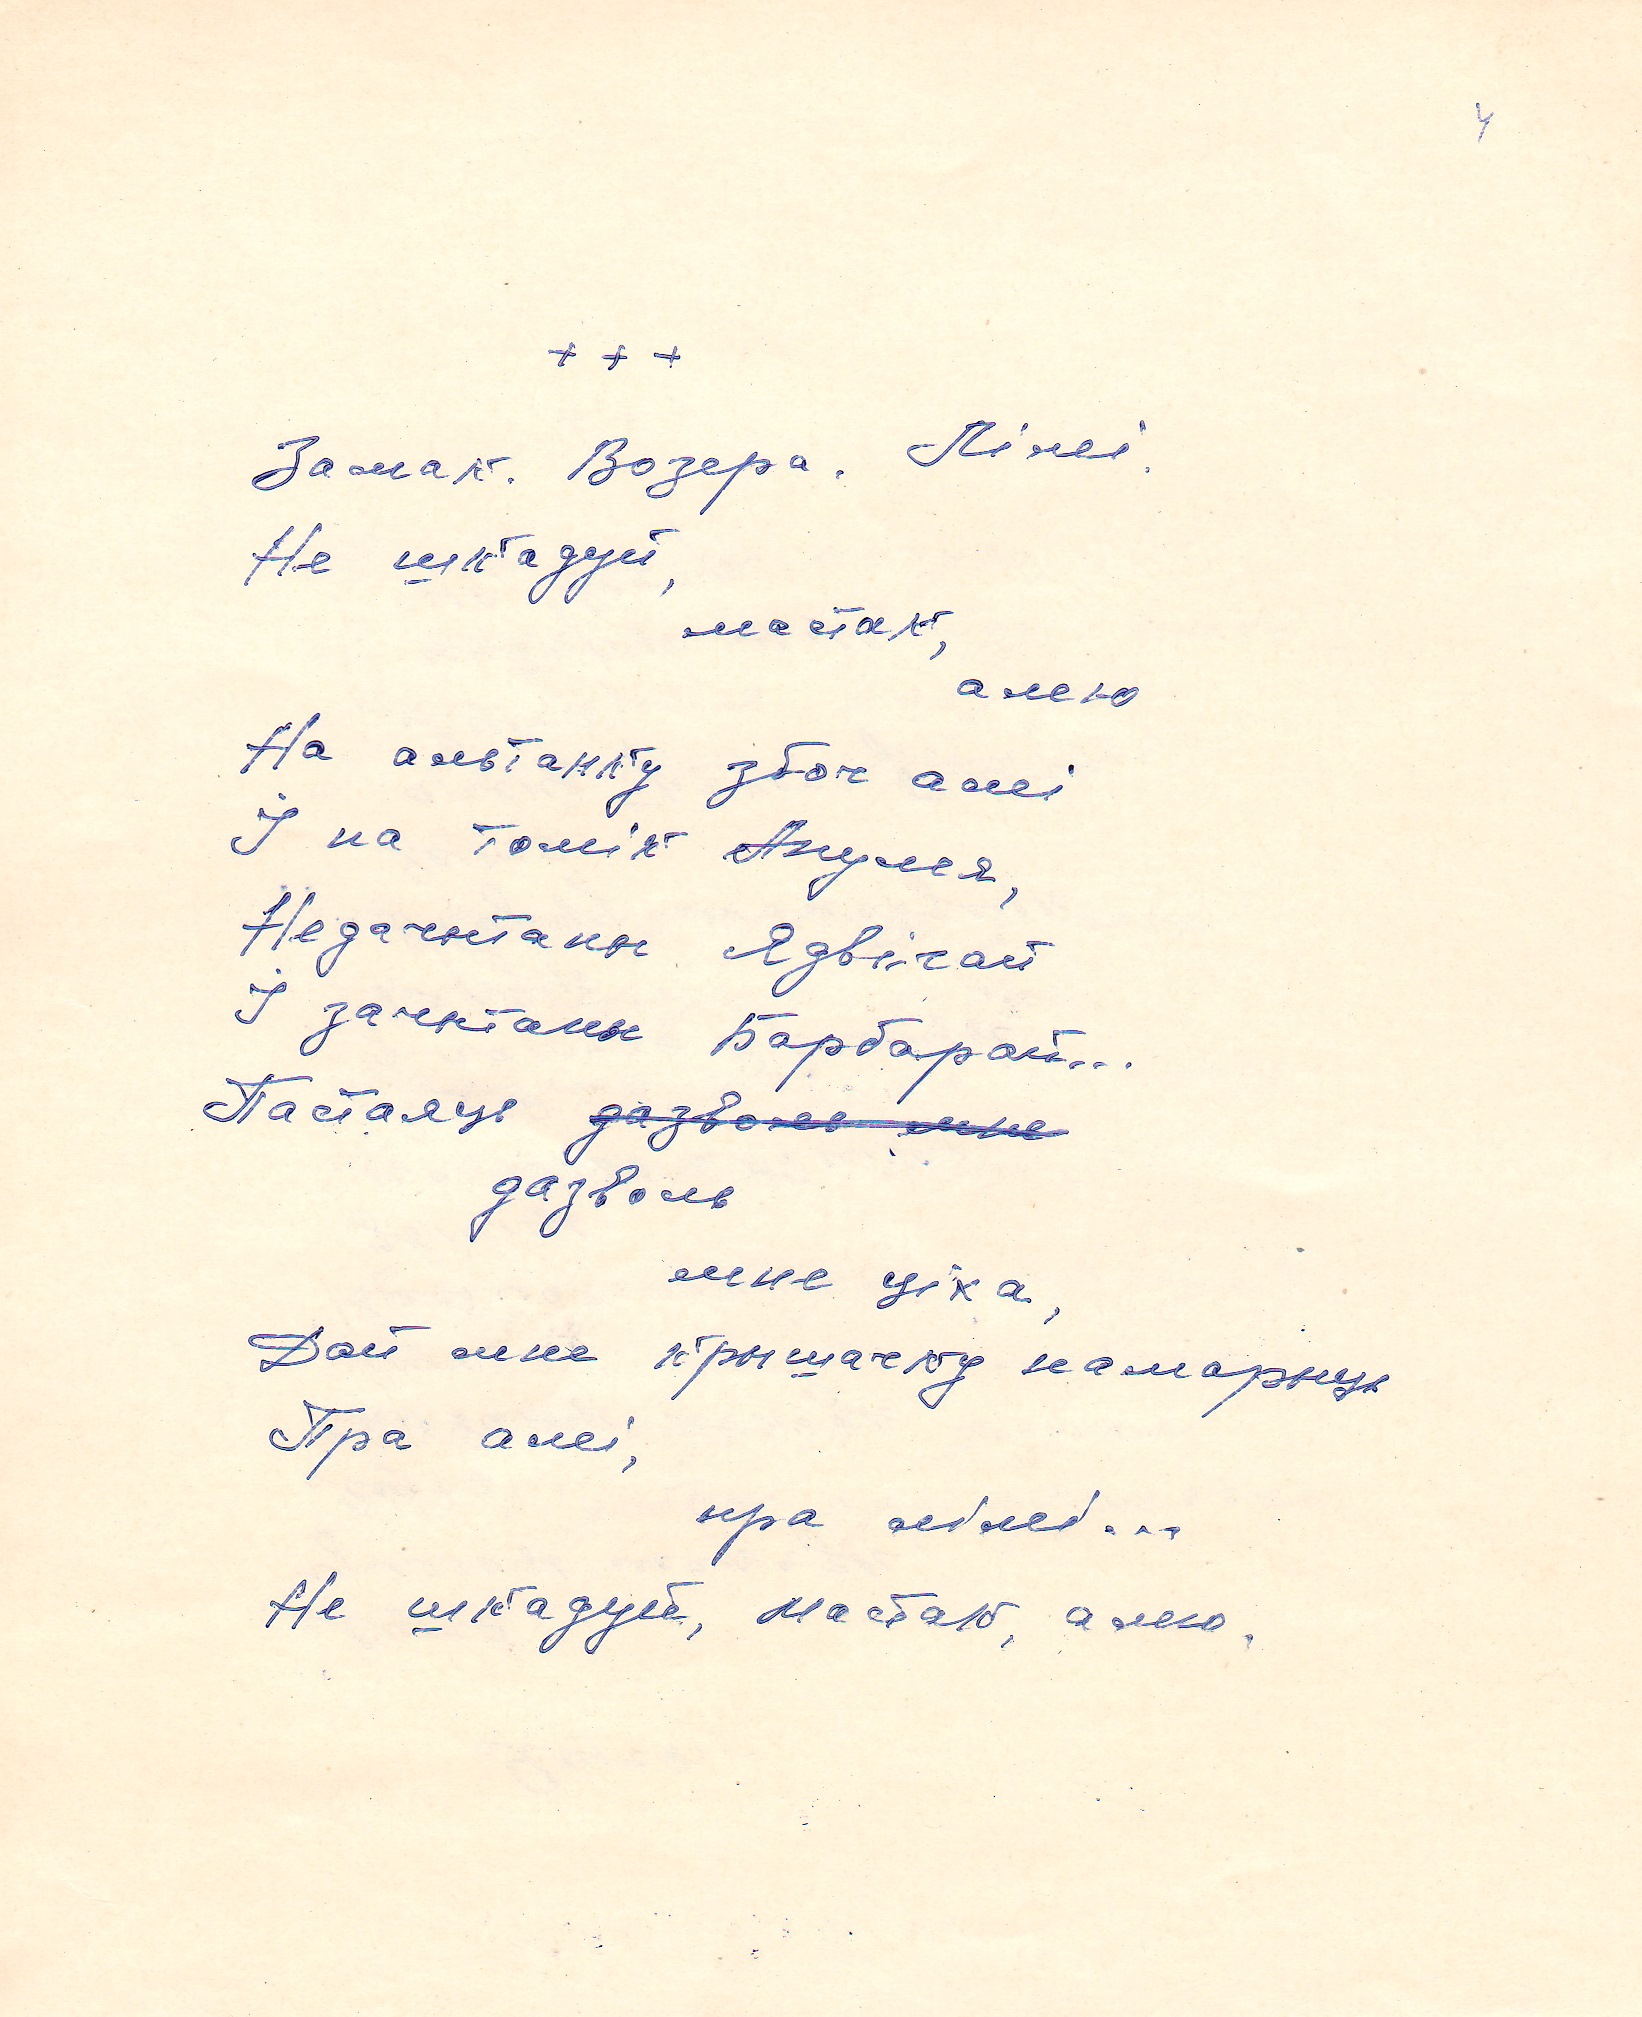 4
+ + +
Замак. Возера. Лілеі.
Не шкадуй,
мастак,
алею
На альтанку збоч алеі
І на томік Апулея,
Недачытаны Ядвігай
І зачытаны Барбарай...
Пастаяць дазволь мне
дазволь
мне ціха,
Дай мне крышачку памарыць
Пра алеі,
пра лілеі...
Не шкадуй, мастак, алею.